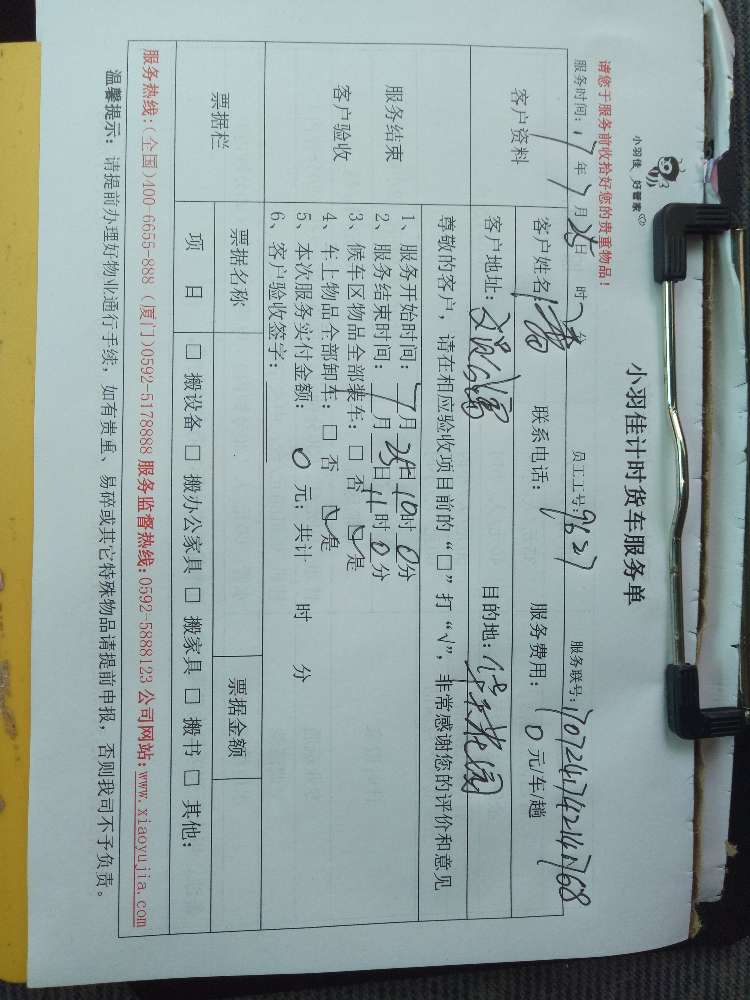 小羽佳 好管家
小羽佳计时货车服务单
请您于服务前收拾好您的贵重物品！
服务时间：17年7月25日 时 分 员工工号：9627 服务联号：
客户资料
客户姓名： 联系电话： 服务费用：0元/车/趟
客户地址： 目的地：花园
服务结束
客户验收
尊敬的客户，请在相应验收项目前的“□”打“√”，非常感谢您的评价和意见
1、服务开始时间：7月25日10时0分
2、服务结束时间：7月25日11时0分
3、候车区物品全部装车：□ 否 ☑ 是
4、车上物品全部卸车：□ 否 ☑ 是
5、本次服务实付金额：0元；共计 时 分
6、客户验收签字：
票据栏
票据名称 票据金额
项 目 □ 搬设备 □ 搬办公家具 □ 搬家具 □ 搬书 □ 其他：
服务热线：(全国)400-6655-888 (厦门)0592-5178888 服务监督热线:0592-5888123 公司网站:www.xiaoyujia.com
温馨提示：请提前办理好物业通行手续，如有贵重、易碎或其它特殊物品请提前申报，否则我司不予负责。